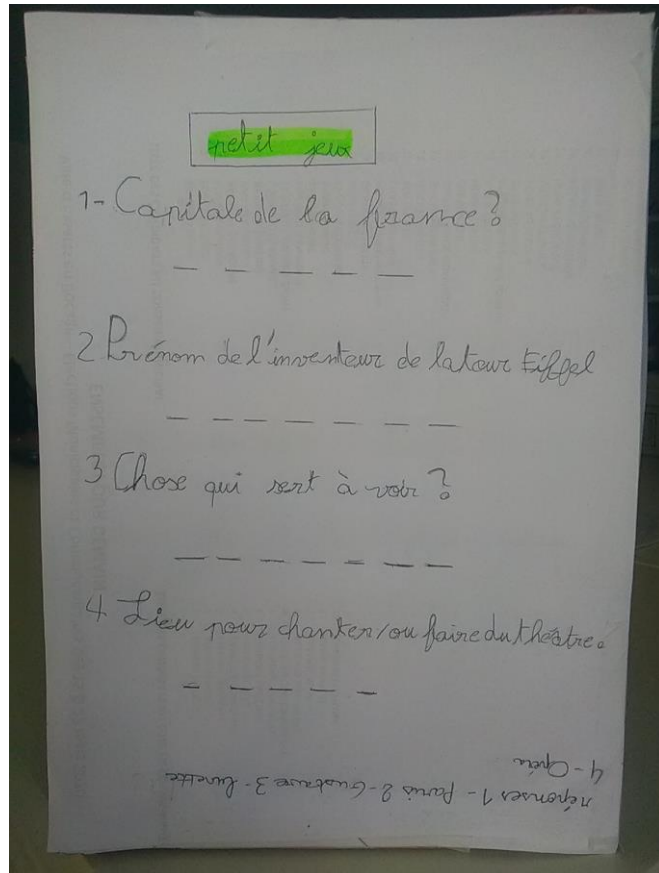 petit jeux
1- Capitale de la france?
_ _ _ _ _
2 Prénom de l'inventeur de la tour Eiffel
_ _ _ _ _ _ _
3 Chose qui sert à voir?
_ _ _ _ _ _ _
4 Lieu pour chanter/ou faire du théâtre.
_ _ _ _ _
réponses 1- Paris 2- Gustave 3- lunette
4- Opéra